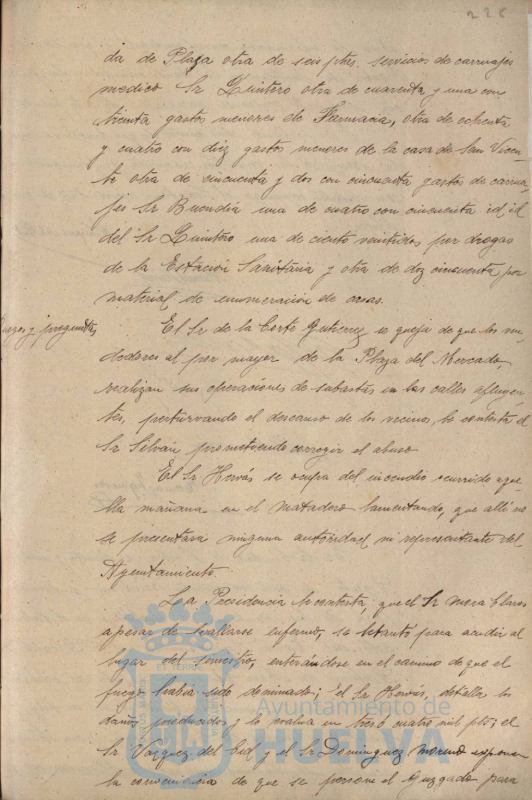 226
da de Plaza otra de seis ptas. servicios de carruajes
medico Sr Quintero otra de cuarenta y una con
treinta gastos menores de Farmacia, otra de ochenta
y cuatro con diez gastos menores de la casa de San Vicen-
te otra de cincuenta y dos con cincuenta gastos de carrua-
jes Sr Buendia una de cuatro con cincuenta id id
del Sr Quintero una de ciento veintidos por drogas
de la Estación Sanitaria y otra de doz cincuenta por
material de enumeración de casas.
Ruegos y preguntas
El Sr de la Corte Gutierrez se queja de que los ven-
dedores al por mayor de la Plaza del Mercado,
realizan sus operaciones de subastas en las calles afluyen-
tes, perturvando el descanso de los vecinos, le contesta el
Sr Silván prometiendo corregir el abuso
El Sr Hervás se ocupa del incendio ocurrido aque
lla mañana en el Matadero lamentando, que allí no
se presentara ninguna autoridad ni representante del
Ayuntamiento.
La Presidencia le contesta, que el Sr Mora Claros
apesar de hallarse enfermo, se levantó para acudir al
lugar del siniestro, enterándose en el camino de que el
fuego habia sido dominado; El Sr Hervás, detalla los
daños producidos, y los evalua en tres ó cuatro mil pts; el
Sr Vazquez del Cid y el Sr Dominguez Moreno exponen
la conveniencia de que se persone el Juzgado para
Ayuntamiento de
HUELVA